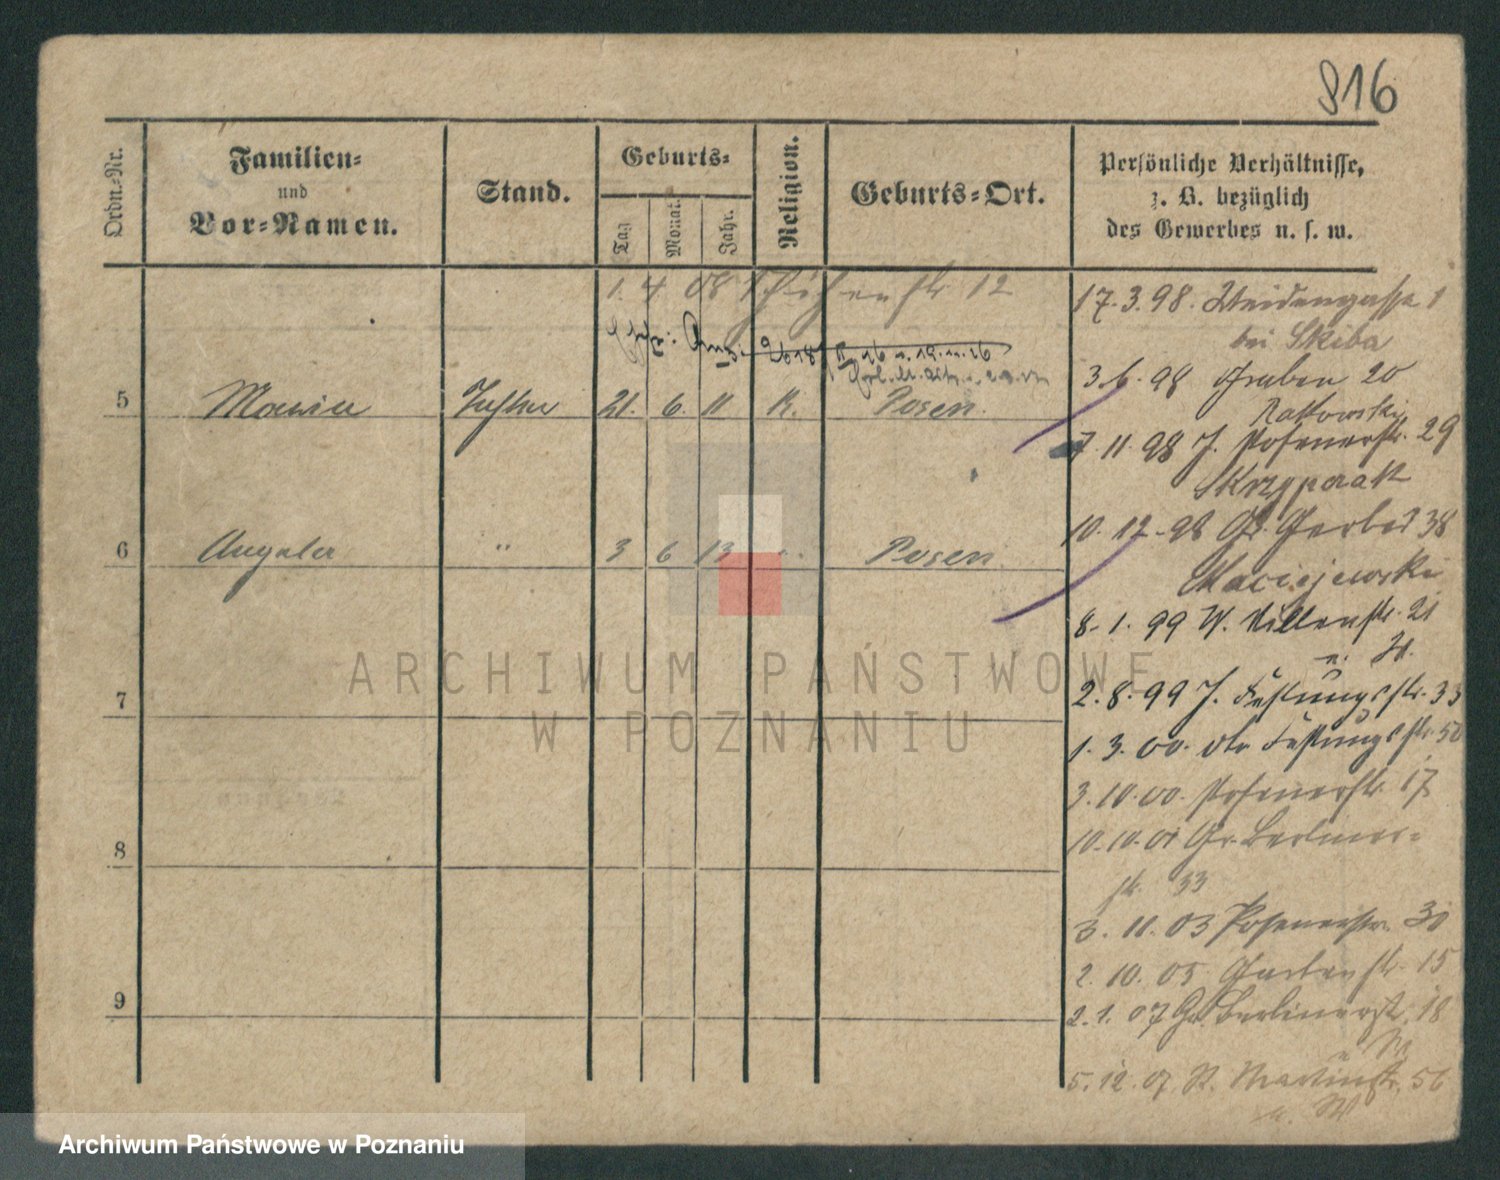 816
Ordn.-Nr.
Familien-
und
Vor-Namen.
Stand.
Geburts-
Tag
Monat.
Jahr.
Religion.
Geburts-Ort.
Persönliche Verhältnisse,
z. B. bezüglich
des Gewerbes u. s. w.
1. 4 08 Schützenstr 12
17.3.98. Weidengasse 1
bei Skiba
3.6.98 Graben 20
Ratkowski
5 Maria Tochter 21. 6. 11 K. Posen.
7.11.98 J. Posenerstr. 29
Skrzypczak
10.12.98 Gr. Gerber 38
Maciejewski
6 Angela " 3 6 13 " Posen
8.1.99 W. Villenstr. 21
n. H.
2.8.99 J. Festungsstr. 33
7
1.3.00. Festungsstr. 50
3.10.00. Posenerstr. 17
10.10.01 Gr. Berliner-
str. 33
8
3.11.03 Posenerstr. 30
2.10.05 Gartenstr. 15
2.1.07 Gr. Berlinerstr. 18
9
5.12.07. St. Martinstr. 56
ARCHIWUM PAŃSTWOWE
W POZNANIU
Archiwum Państwowe w Poznaniu